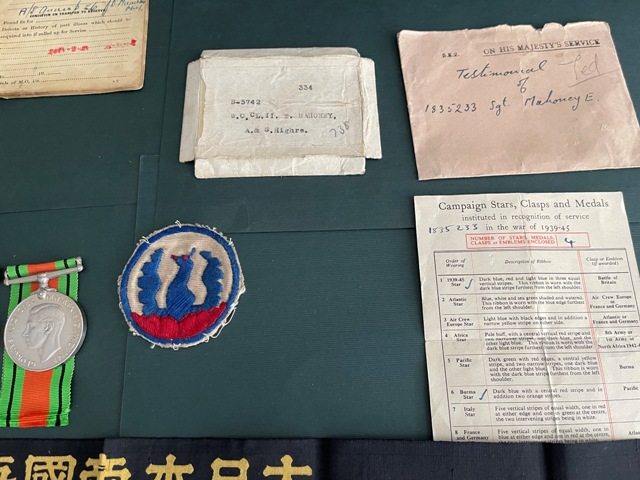 CONDITION ON TRANSFER TO RESERVE
Found fit for
Defects or History of past illness which should be
enquired into if called up for Service
19
334
S-5742
W.O.Cl.II. E. MAHONEY,
A.& S.Highrs.
738
O.H.M.S. ON HIS MAJESTY'S SERVICE
Testimonial
of
1835233 Sgt. Mahoney E.
Campaign Stars, Clasps and Medals
instituted in recognition of service
in the war of 1939-45
1835233
NUMBER OF STARS, MEDALS,
CLASPS or EMBLEMS ENCLOSED
4
Order of Wearing
Description of Ribbon
Clasp or Emblem (if awarded)
1 1939-45 Star
Dark blue, red and light blue in three equal
vertical stripes. This ribbon is worn with the
dark blue stripe furthest from the left shoulder.
Battle of Britain
2 Atlantic Star
Blue, white and sea green shaded and watered.
This ribbon is worn with the blue edge furthest
from the left shoulder.
Air Crew Europe or
France and Germany
3 Air Crew Europe Star
Light blue with black edges and in addition a
narrow yellow stripe on either side.
Atlantic or
France and Germany
4 Africa Star
Pale buff, with a central vertical red stripe and
two narrower stripes, one dark blue, and
the other light blue. This ribbon is worn with
the dark blue stripe furthest from the left shoulder.
8th Army or
1st Army or
North Africa 1942-4
5 Pacific Star
Dark green with red edges, a central yellow
stripe, and two narrow stripes, one dark blue
and the other light blue. This ribbon is worn
with the dark blue stripe furthest from the left
shoulder.
Burma
6 Burma Star
Dark blue with a central red stripe and in
addition two orange stripes.
Pacific
7 Italy Star
Five vertical stripes of equal width, one in red
at either edge and one in green at the centre,
the two intervening stripes being in white.
8 France and Germany
Five vertical stripes of equal width, one in
blue at either edge and one in red at the centre,
Atlantic
大日本帝國